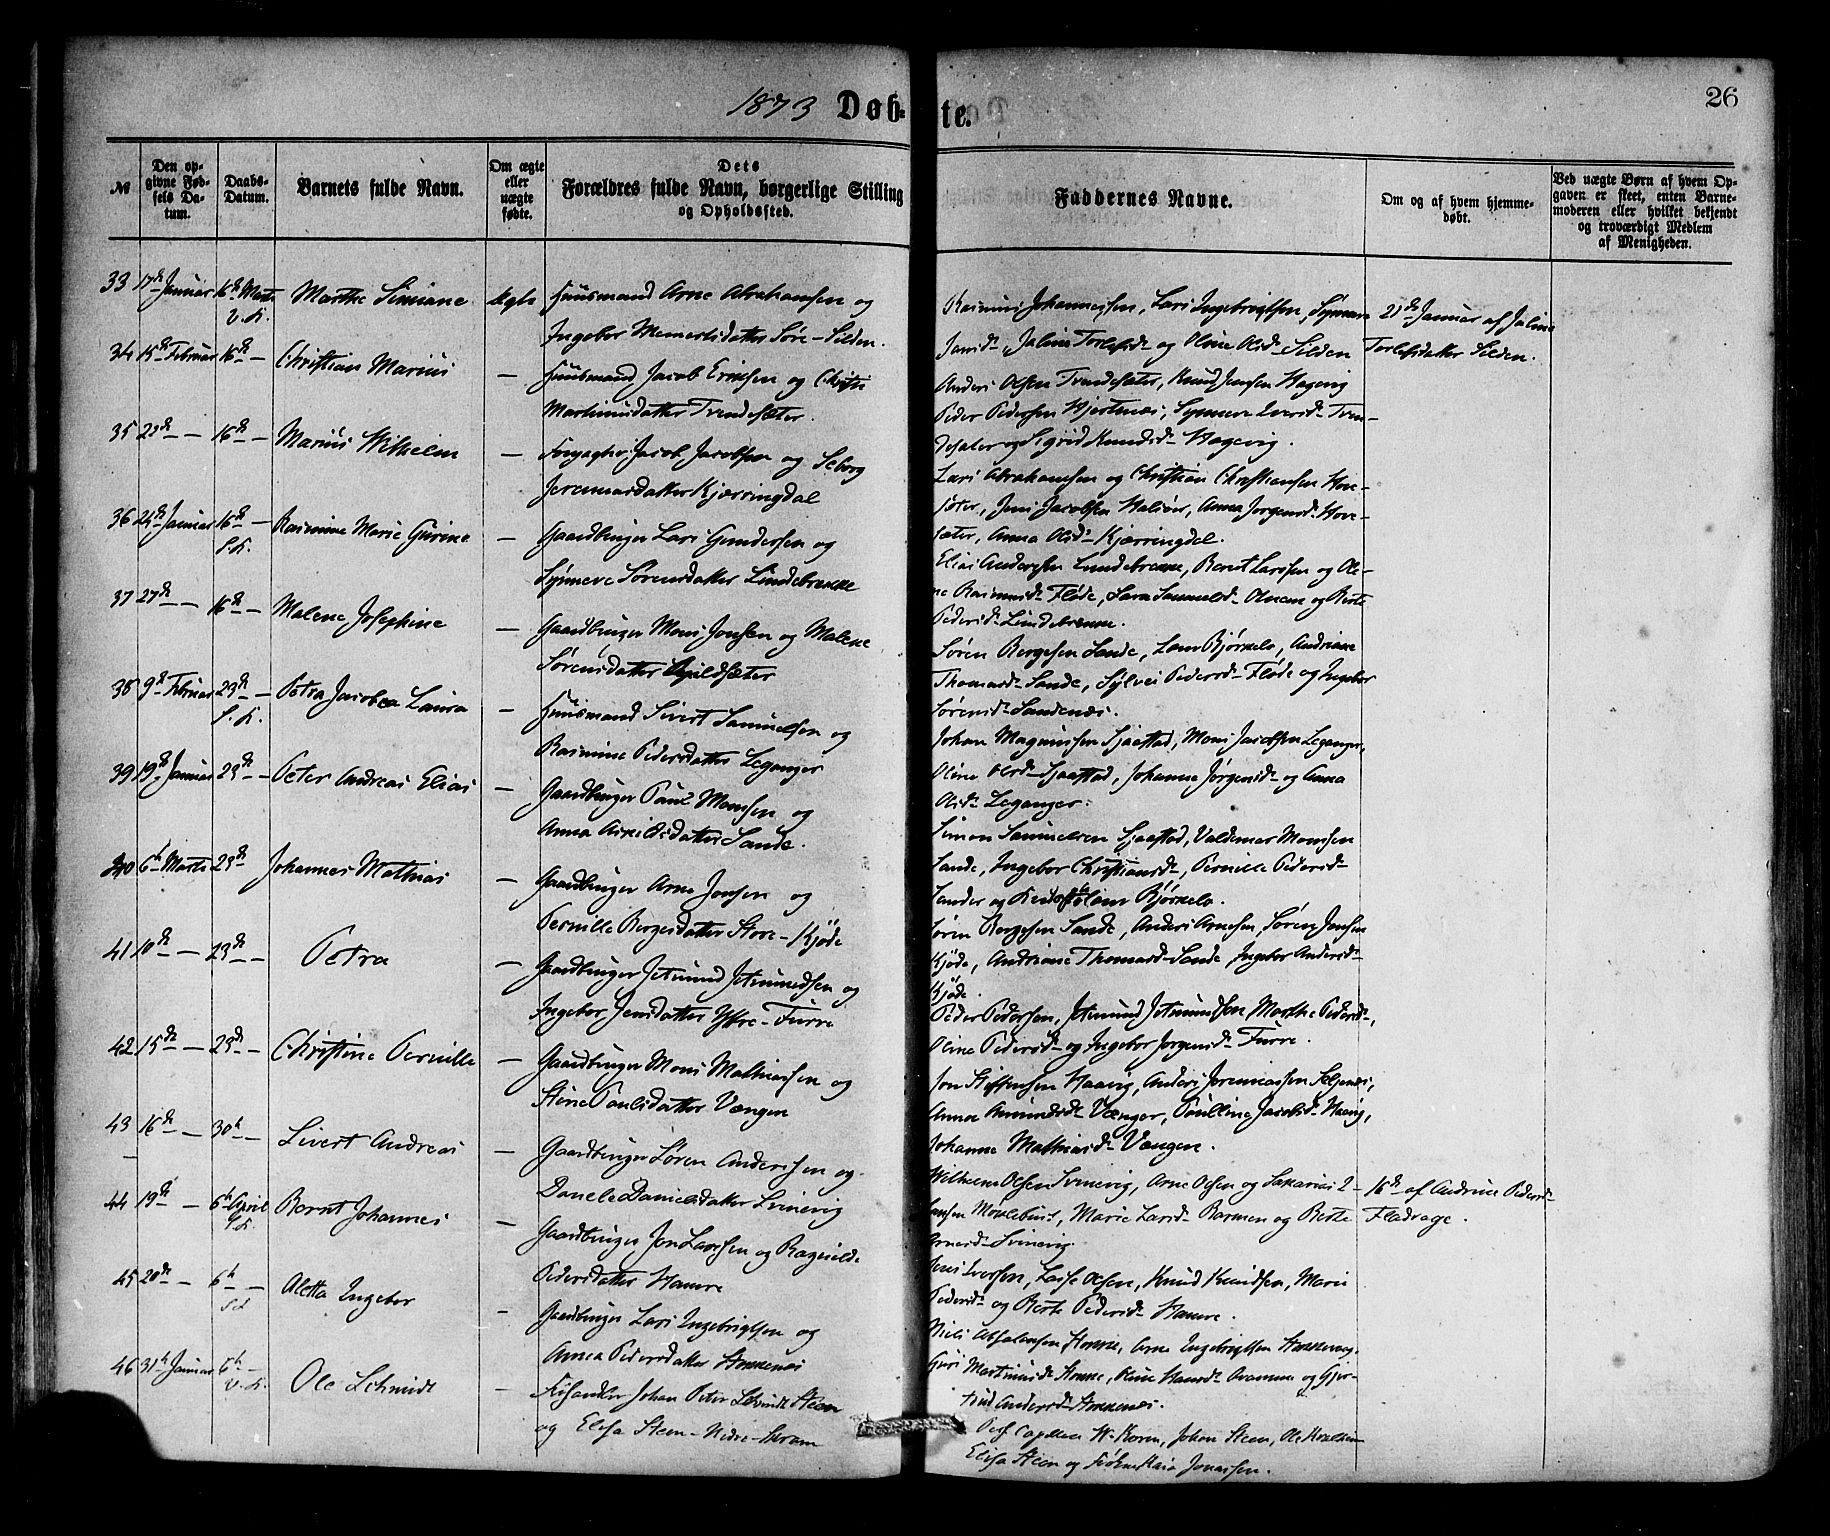 1873 Døb=
te.
26
№
Den op-
givne Fød-
sels Da-
tum.
Daabs-
Datum.
Barnets fulde Navn.
Om ægte
eller
uægte
fødte.
Dets
Forældres fulde Navn, borgerlige Stilling
og Opholdssted.
Faddernes Navne.
Om og af hvem hjemme-
døbt.
Ved uægte Børn af hvem Op-
gaven er skeet, enten Barne-
moderen eller hvilket bekjendt
og troværdigt Medlem
af Menigheden.
33 17de Januar 16de Marts Marthe Simiane Ægte Huusmand Arne Abrahamsen og
V. K.
Ingebor Memertsdatter Søre-Silden.
Rasmus Johannessen, Lars Ingebrigtsen, Synneve
Jansd., Jaline Torlefsd. og Oline Olsd. Silden
21de Januar af Jaline
Torlefsdatter Silden.
34 15de Februar 16de — Christian Marius — Huusmand Jacob Eriksen og Christi
Martinusdatter Tvendesæter.
Anders Olsen Tvendesæter, Knud Jensen Hagevig
Peder Pedersen Hjertenæs, Synneve Iversd. Tven-
desæter og Sigrid Knudsd. Hagevig.
35 22de — 16de — Marius Wilhelm — Forpagter Jacob Jacobsen og Seborg
Jeremiasdatter Kjærringdal
Lars Abrahamsen og Christian Christiansen Hove-
sæter, Jens Jacobsen Haliør, Anna Jørgensd. Hove-
sæter, Anna Olsd. Kjærringdal.
36 24de Januar 16de — Rasmine Marie Gurine — Gaardbruger Lars Gundersen og
S. K.
Synneve Sørensdatter Lindebrekke
Elias Andersen Lindebrekke, Bernt Larssen og Ole-
ne Rasmusd. Fløde, Sara Samuelsd. Osmem og Berte
Pedersd. Lindebrekke.
37 27de — 16de — Malene Josephine — Gaardbruger Mons Jonsen og Malene
Sørensdatter Apildsæter
Søren Bergesen Sande, Lam Bjørkelo, Andriane
Thomasd. Sande, Sylvei Pedersd. Fløde og Ingebor
Sørensd. Sandenæs.
38 9de Februar 23de — Petra Jacobea Laura — Huusmand Sivert Samuelsen og
S. K.
Rasmine Pedersdatter Leganger
Johan Magnussen Sjaastad, Mons Jacobsen Leganger,
Oline Olsd. Sjaastad, Johanne Jørgensd. og Anna
Olsd. Leganger.
39 19de Januar 23de — Peter Andreas Elias — Gaardbruger Paul Monssen og
Anna Arnsdatter Sande.
Simon Samuelsen Sjaastad, Valdemar Monssen
Sande, Ingebor Christiansd., Pernille Pedersd.
Sande og Bjørkelo.
40 6te Marts 23de Johannes Mathias — Gaardbruger Arne Jonsen og
Pernille Bergesdatter Store-Kjøde
Søren Bergesen Sande, Anders Arnesen, Søren Jonsen
Kjøde, Andriane Thomasd. Sande, Ingebor Andersd.
Kjøde.
41 10de — 23de — Petra — Gaardbruger Jetmund Jetmundsen og
Ingebor Jensdatter Ytre-Furre
Peder Pedersen, Jetmund Jetmundsen Marthe Pedersd.,
Oline Pedersd. og Ingebor Jørgensd. Furre.
42 15de — 23de — Christine Pernille — Gaardbruger Mons Mathiassen og
Stine Paulsdatter Vængen
Jon Steffensen Haavig, Anders Jeremiassen Seljenæs,
Anna Amundsd. Vænger, Paulline Jacobsd. Haavig,
Johanne Mathiasd. Vængen.
43 16de — 30te — Sivert Andreas — Gaardbruger Søren Anderssen og
Danele Danielsdatter Svinevig
Wilhelm Olsen Svinevig, Arne Olsen og Sakarias L-
arsen Møklebust, Marie Larsd. Barmen og Berte
Arnesd. Svinevig.
16de af Andrine Pedersd.
Fladvage.
44 19de — 6te April Bernt Johannes — Gaardbruger Jon Larsen og Ragnilde
S. K.
Pedersdatter Hamre
Jens Iversen, Lasse Olsen, Knud Knudsen, Marie
Pedersd. og Berte Pedersd. Hamre.
45 20de — 6te — Aletta Ingebor — Gaardbruger Lars Ingebrigtsen og
S. K.
Anna Pedersdatter Stokkenæs
Niels Absalonsen Stokke, Arne Ingebrigtsen Stokkenæs,
Guri Martinusd. Stokke, Rine Hansd. Aramme og Gjer-
trud Andersd. Stokkenæs.
46 31te Januar 6te — Ole Schmidt — Fishandler Johan Peter Schmidt Steen
V. K.
og Elisa Steen-Nedre-Berom
Pers. Capellan W. Koren, Johan Steen, Ole
Elisa Steen og Maria Jonassen.